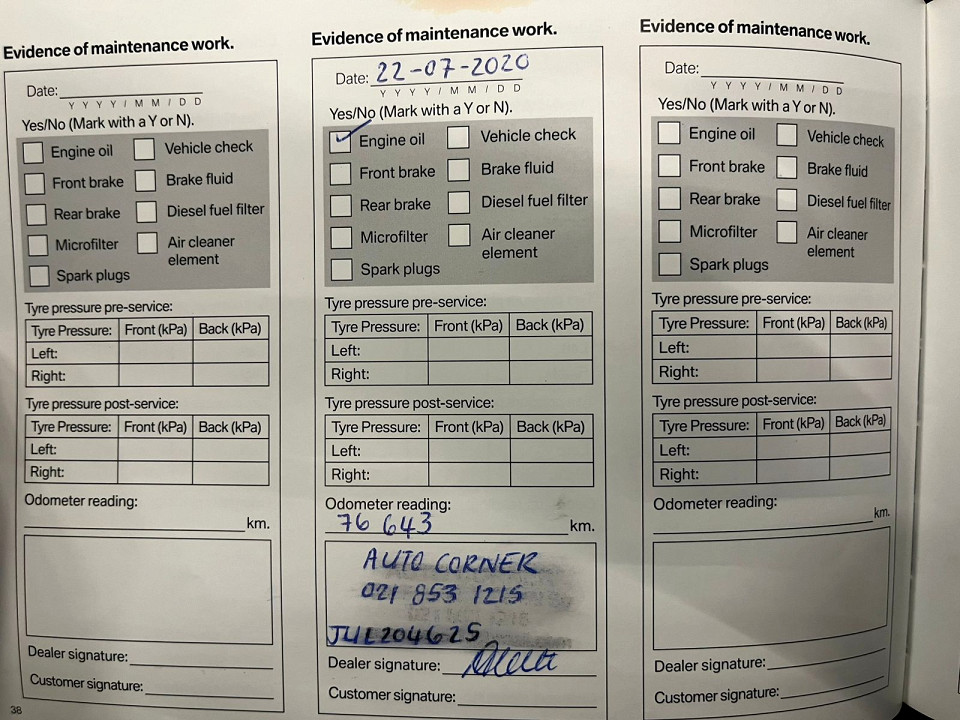 Evidence of maintenance work.
Date:
Y Y Y Y / M M / D D
Yes/No (Mark with a Y or N).
Engine oil Vehicle check
Front brake Brake fluid
Rear brake Diesel fuel filter
Microfilter Air cleaner
element
Spark plugs
Tyre pressure pre-service:
Tyre Pressure: Front (kPa) Back (kPa)
Left:
Right:
Tyre pressure post-service:
Tyre Pressure: Front (kPa) Back (kPa)
Left:
Right:
Odometer reading:
km.
Dealer signature:
Customer signature:
38
Evidence of maintenance work.
Date: 22-07-2020
Y Y Y Y / M M / D D
Yes/No (Mark with a Y or N).
Engine oil Vehicle check
Front brake Brake fluid
Rear brake Diesel fuel filter
Microfilter Air cleaner
element
Spark plugs
Tyre pressure pre-service:
Tyre Pressure: Front (kPa) Back (kPa)
Left:
Right:
Tyre pressure post-service:
Tyre Pressure: Front (kPa) Back (kPa)
Left:
Right:
Odometer reading:
76 643 km.
AUTO CORNER
021 853 1215
JUL204625
Dealer signature:
Customer signature:
Evidence of maintenance work.
Date:
Y Y Y Y / M M / D D
Yes/No (Mark with a Y or N).
Engine oil Vehicle check
Front brake Brake fluid
Rear brake Diesel fuel filter
Microfilter Air cleaner
element
Spark plugs
Tyre pressure pre-service:
Tyre Pressure: Front (kPa) Back (kPa)
Left:
Right:
Tyre pressure post-service:
Tyre Pressure: Front (kPa) Back (kPa)
Left:
Right:
Odometer reading:
km.
Dealer signature:
Customer signature: